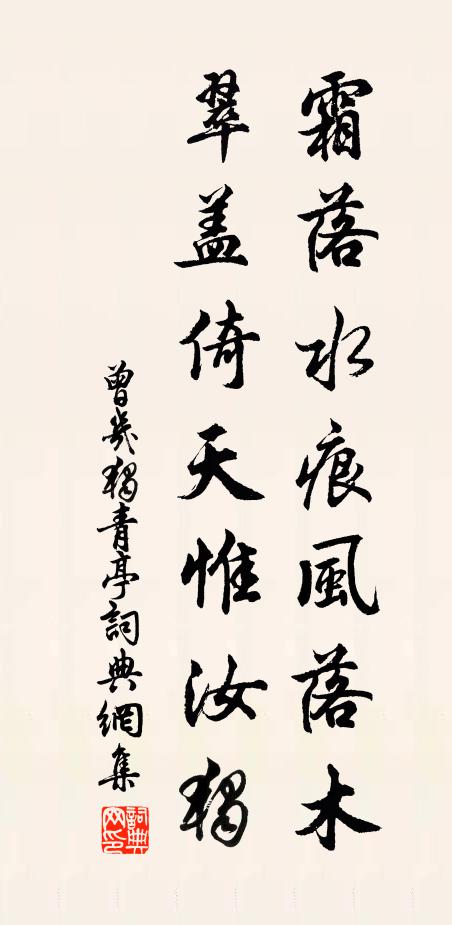 霜落水痕風落木
翠盖倚天惟汝獨
曾幾獨青亭詞典網集
詞典網印